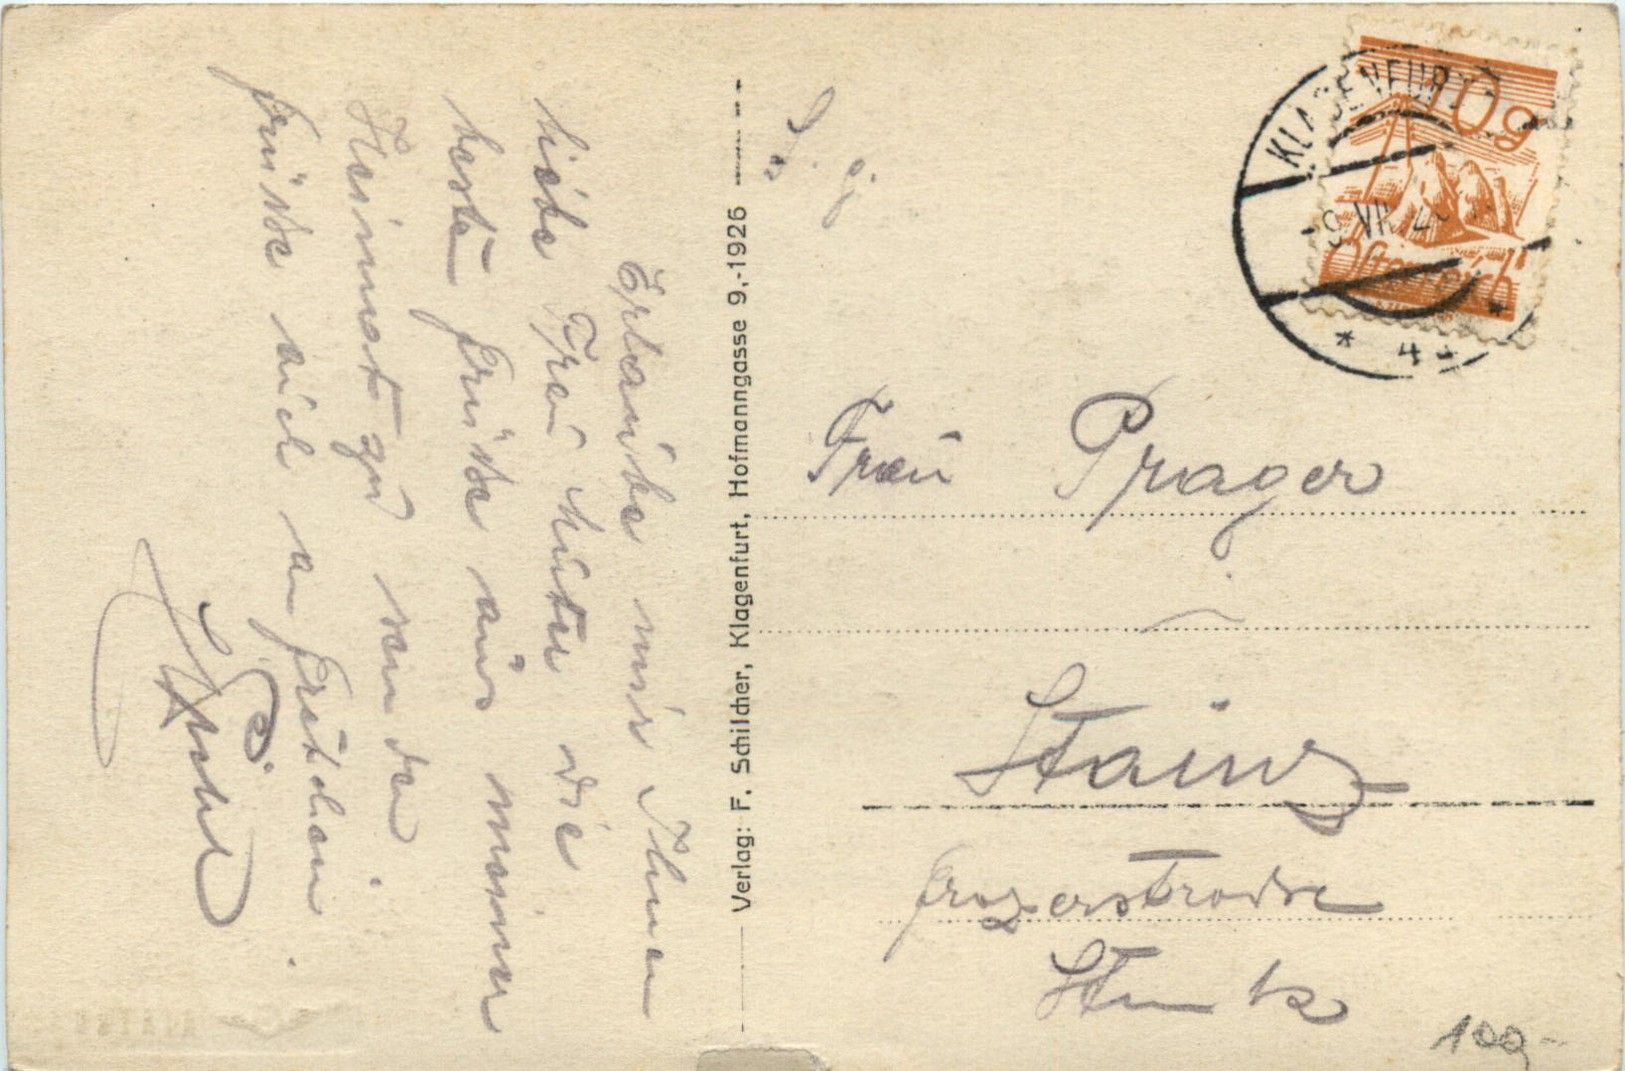 Erlaube mir Ihnen
liebe Frau Mutter die
beste Grüße aus meiner
Heimat zu senden.
Grüße auch an Gretchen.
Verlag: F. Schilcher, Klagenfurt, Hofmanngasse 9,-1926
KLAGENFURT
9. VII.
* 4 *
10g
Österreich
Frau Prager
Stainz
Grazerstrasse
Stmk
100,-